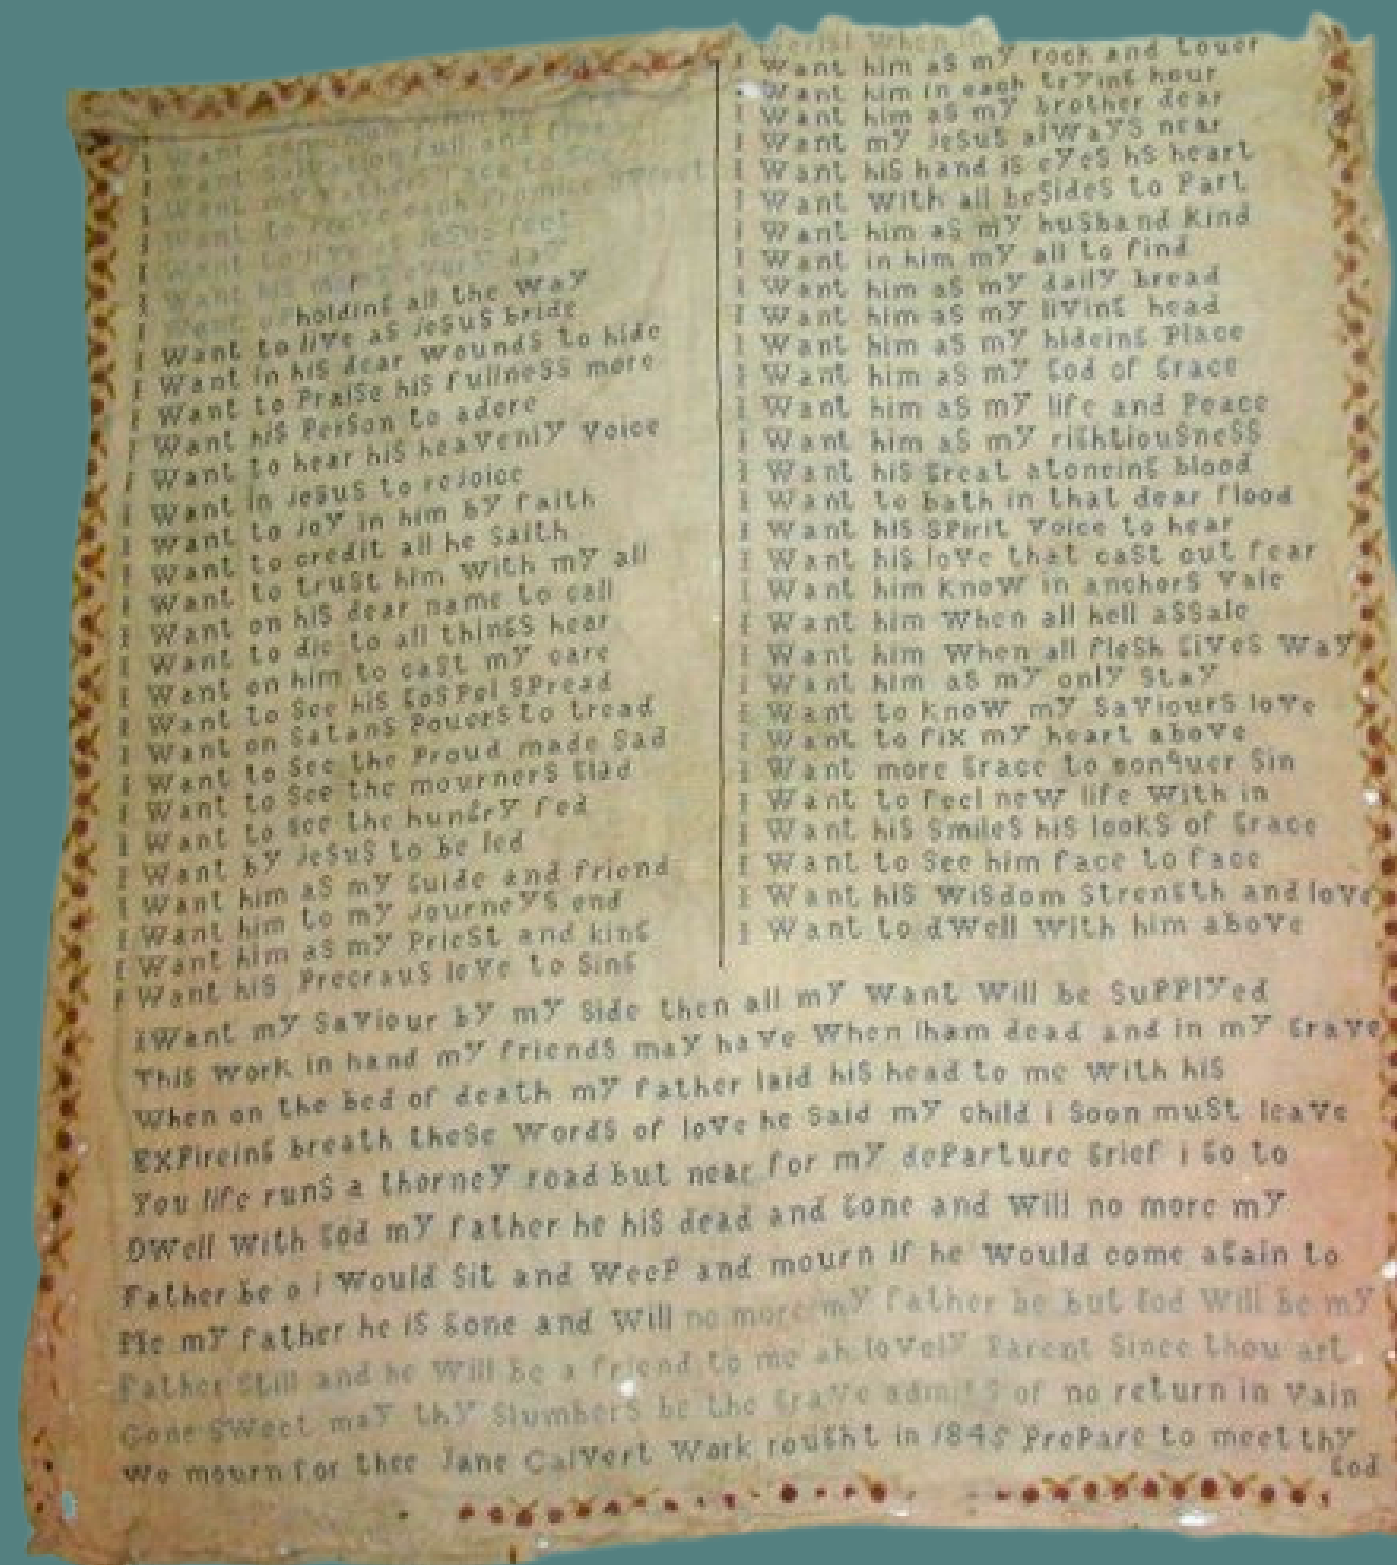 I Want
I Want Salvation full and free
I Want my Fathers face to See
I Want to each Promise Sweet
I Want to live at JeSuS feet
I Want hiS mercy every day
I Want upholding all the Way
I Want to live aS JeSuS bride
I Want in hiS dear WoundS to hide
I Want to PraiSe hiS fullneSS more
I Want hiS PerSon to adore
I Want to hear hiS heaVenlY Voice
I Want in JeSuS to rejoice
I Want to JoY in him bY faith
I Want to credit all he Saith
I Want to truSt him With mY all
I Want on hiS dear name to call
I Want to die to all thingS hear
I Want on him to caSt mY care
I Want to See hiS GoSPel SPread
I Want on SatanS PouerS to tread
I Want to See the Proud made Sad
I Want to See the mournerS Glad
I Want to See the hungrY fed
I Want bY JeSuS to be led
I Want him aS mY Guide and friend
I Want him to mY JourneYS end
I Want him aS mY PrieSt and king
I Want hiS PrecrauS loVe to Sing
When in
I Want him aS mY rock and touer
I Want him in each trYing hour
I Want him aS mY brother dear
I Want mY JeSuS alWaYS near
I Want hiS hand iS eYeS hS heart
I Want With all beSideS to Part
I Want him aS mY huSband Kind
I Want in him mY all to find
I Want him aS mY dailY bread
I Want him aS mY liVing head
I Want him aS mY hideing Place
I Want him aS mY God of Grace
I Want him aS mY life and Peace
I Want him aS mY rightiouSneSS
I Want hiS Great atoneing blood
I Want to bath in that dear flood
I Want hiS SPirit Voice to hear
I Want hiS loVe that caSt out fear
I Want him KnoW in anchorS Vale
I Want him When all hell aSSale
I Want him When all fleSh GiVeS WaY
I Want him aS mY onlY StaY
I Want to KnoW mY SaViourS loVe
I Want to fix mY heart aboVe
I Want more Grace to conquer Sin
I Want to feel neW life With in
I Want hiS SmileS hiS lookS of Grace
I Want to See him face to face
I Want hiS WiSdom Strength and loVe
I Want to dWell With him aboVe
I Want mY SaViour bY mY Side then all mY Want Will be SuPPlYed
ThiS Work in hand mY friendS maY haVe When Iham dead and in mY GraVe
When on the bed of death mY father laid hiS head to me With hiS
EXPireing breath theSe WordS of loVe he Said mY child i Soon muSt leaVe
You life runS a thorneY road but near for mY deParture Grief i Go to
DWell With God mY father he hiS dead and Gone and Will no more mY
Father be o i Would Sit and WeeP and mourn if he Would come aGain to
Me mY father he iS Gone and Will no more mY father be but God Will be mY
Father Still and he Will be a friend to me ah loVelY Parent Since thou art
Gone SWeet maY thY SlumberS be the GraVe admitS of no return in Vain
We mourn for thee Jane CalVert Work rought in 1845 PrePare to meet thY
God